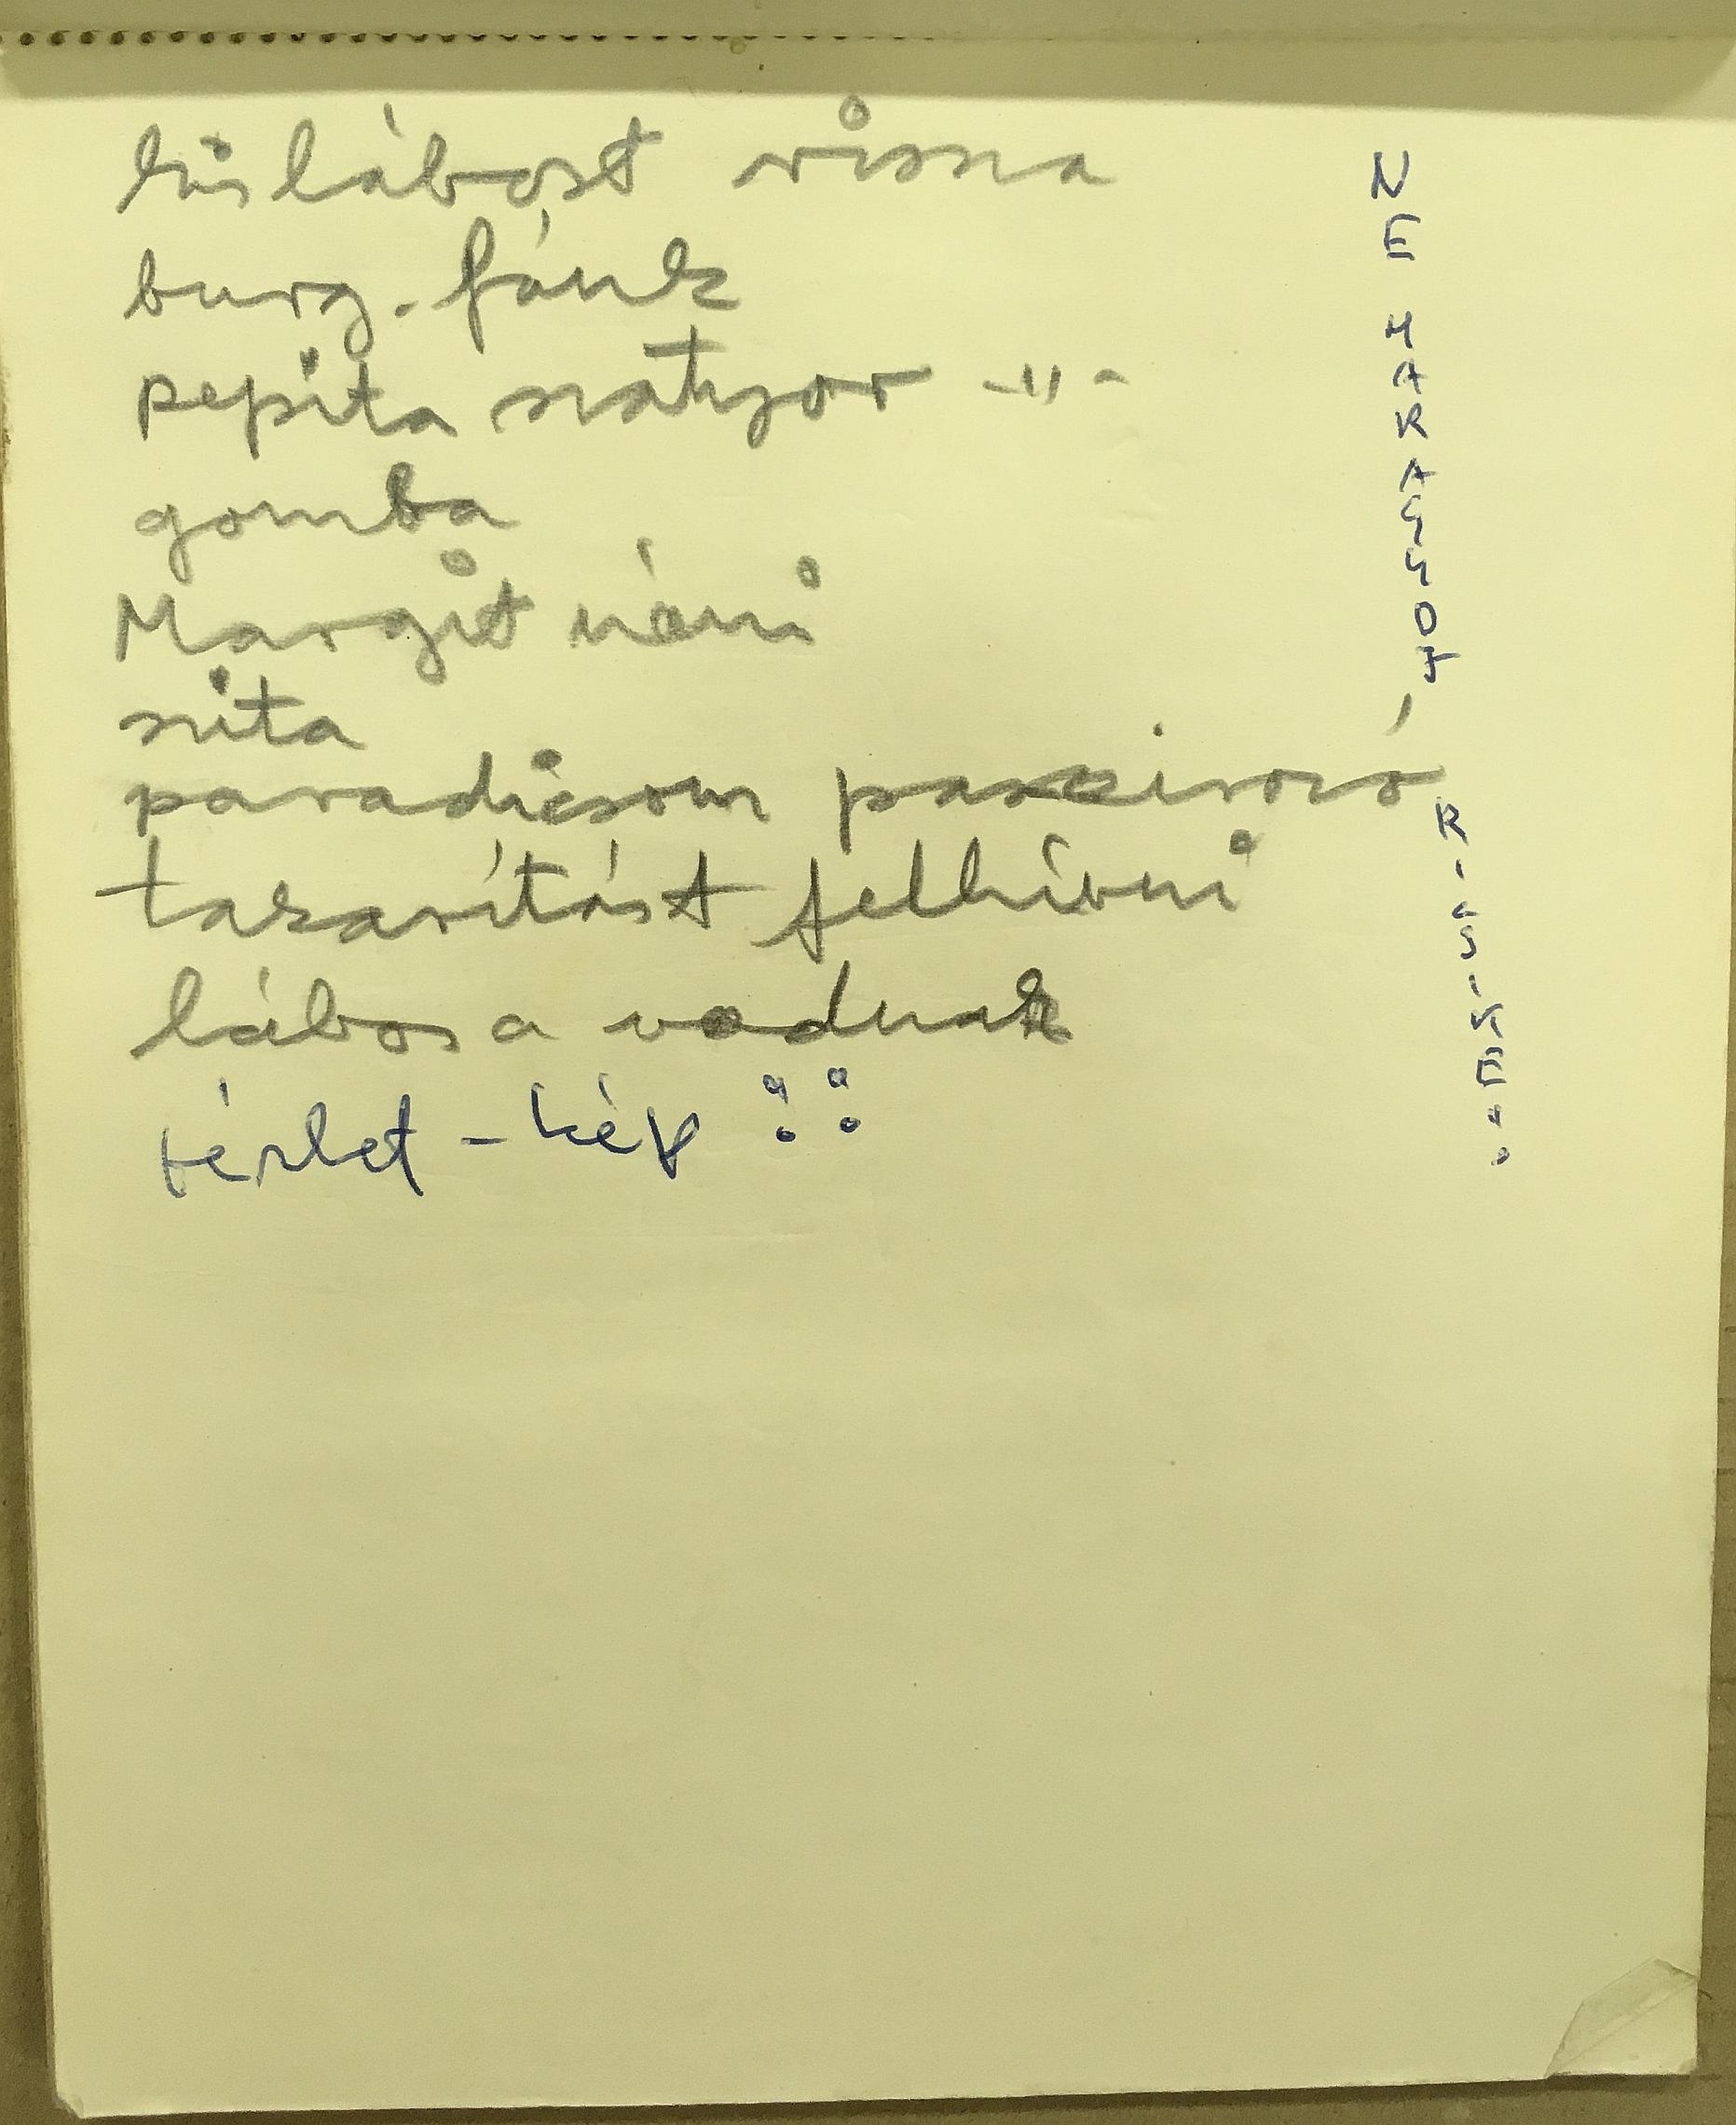 kis lábost vissza
burg. fánk
pepita szatyor -11-
gomba
Margit néni
szita
paradicsom passzírozó
takarítást felhívni
lábos a vadnak
térlet - kép :
NE HARAGGYOT,
RICSIKE: